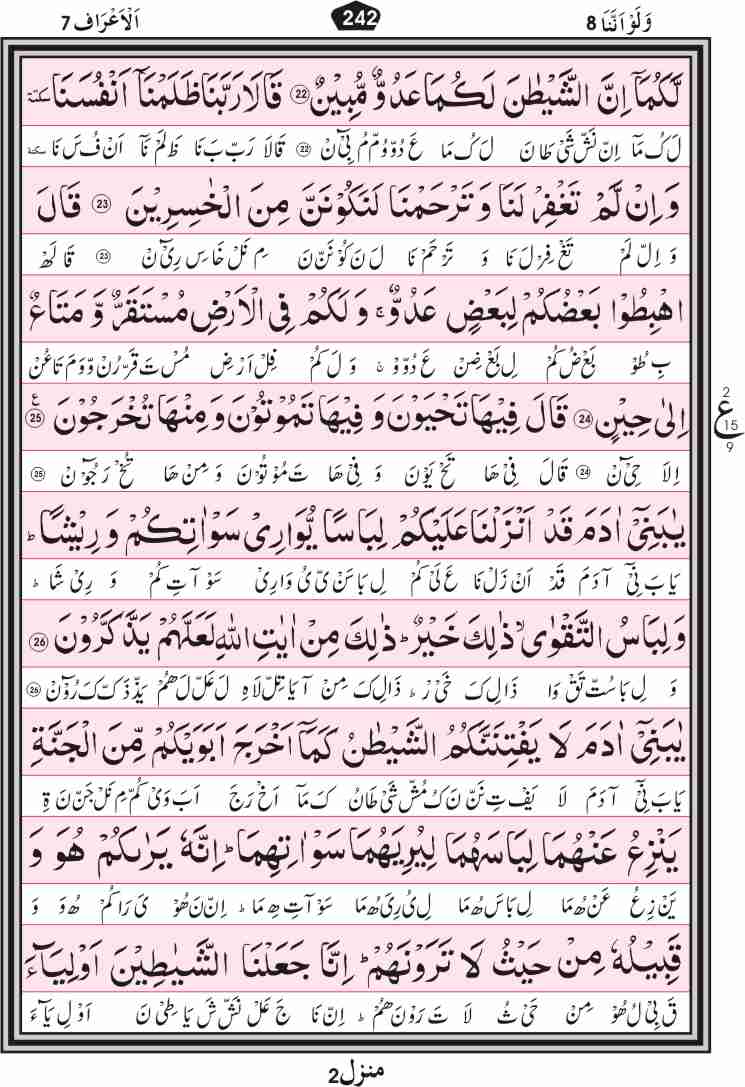 وَلَوْ اَنَّنَا 8 242 اَلْاَعْرَاف 7
لَّكُمَاۤ اِنَّ الشَّيْطٰنَ لَكُمَا عَدُوٌّ مُّبِيْنٌ 22 قَالَا رَبَّنَا ظَلَمْنَاۤ اَنْفُسَنَا سكتة
لَ كُ مَاۤ اِنّ نَشّ شَىْ طَا نَ لَ كُ مَا عَ دُوّ وُمّ مُ بِىْٓ نْ 22 قَالَا رَبّ بَ نَا ظَ لَمْ نَاۤ اَنْ فُ سَ نَا سكتة
وَ اِنْ لَّمْ تَغْفِرْ لَنَا وَ تَرْحَمْنَا لَنَكُوْنَنَّ مِنَ الْخٰسِرِيْنَ 23 قَالَ
وَ اِلّ لَمْ تَغْ فِرْ لَ نَا وَ تَرْ حَمْ نَا لَ نَ كُوْ نَنّ نَ مِ نَلْ خَا سِ رِىْٓ نْ 23 قَا لَهْ
اهْبِطُوْا بَعْضُكُمْ لِبَعْضٍ عَدُوٌّ ۚ وَ لَكُمْ فِى الْاَرْضِ مُسْتَقَرٌّ وَّ مَتَاعٌ
بِ طُوْ بَعْ ضُ كُمْ لِ بَعْ ضِنْ عَ دُوّ وْ ۚ وَ لَ كُمْ فِلْ اَرْ ضِ مُسْ تَ قَرّ رُنْ وّ وَ مَ تَا عُنْ
اِلٰى حِيْنٍ 24 قَالَ فِيْهَا تَحْيَوْنَ وَ فِيْهَا تَمُوْتُوْنَ وَ مِنْهَا تُخْرَجُوْنَ 25 ع
2 ع 15 9
اِلَا حِىْٓ نْ 24 قَالَ فِىْ هَا تَحْ يَوْ نَ وَ فِىْ هَا تَ مُوْ تُوْ نَ وَ مِنْ هَا تُخْ رَ جُوْٓ نْ 25
يٰبَنِىْۤ اٰدَمَ قَدْ اَنْزَلْنَا عَلَيْكُمْ لِبَاسًا يُّوَارِىْ سَوْاٰتِكُمْ وَ رِيْشًا ؕ
يَا بَ نِىْۤ آ دَمَ قَدْ اَنْ زَلْ نَا عَ لَىْ كُمْ لِ بَا سَنْ ىّ يُ وَا رِىْ سَوْ آ تِ كُمْ وَ رِىْ شَا ؕ
وَ لِبَاسُ التَّقْوٰى ۙ ذٰلِكَ خَيْرٌ ؕ ذٰلِكَ مِنْ اٰيٰتِ اللّٰهِ لَعَلَّهُمْ يَذَّكَّرُوْنَ 26
وَ لِ بَا سُتّ تَقْ وَا ذَا لِ كَ خَىْ رْ ؕ ذَا لِ كَ مِنْ آ يَا تِلّ لَا هِ لَ عَلّ لَ هُمْ يَذّ ذَكّ كَ رُوْٓ نْ 26
يٰبَنِىْۤ اٰدَمَ لَا يَفْتِنَنَّكُمُ الشَّيْطٰنُ كَمَاۤ اَخْرَجَ اَبَوَيْكُمْ مِّنَ الْجَنَّةِ
يَا بَ نِىْۤ آ دَمَ لَا يَفْ تِ نَنّ نَ كُ مُشّ شَىْ طَا نُ كَ مَاۤ اَخْ رَ جَ اَبَ وَىْ كُمّ مِ نَلْ جَنّ نَ ةِ
يَنْزِعُ عَنْهُمَا لِبَاسَهُمَا لِيُرِيَهُمَا سَوْاٰتِهِمَا ؕ اِنَّهٗ يَرٰىكُمْ هُوَ وَ
يَنْ زِ عُ عَنْ هُ مَا لِ بَا سَ هُ مَا لِ يُ رِ ىَ هُ مَا سَوْ آ تِ هِ مَا ؕ اِنّ نَ هُوْ ىَ رَا كُمْ هُ وَ وَ
قَبِيْلُهٗ مِنْ حَيْثُ لَا تَرَوْنَهُمْ ؕ اِنَّا جَعَلْنَا الشَّيٰطِيْنَ اَوْلِيَآءَ
قَ بِىْ لُ هُوْ مِنْ حَىْ ثُ لَا تَ رَوْ نَ هُمْ ؕ اِنّ نَا جَ عَلْ نَشّ شَ يَا طِىْ نَ اَوْ لِ يَآ ءَ
منزل 2